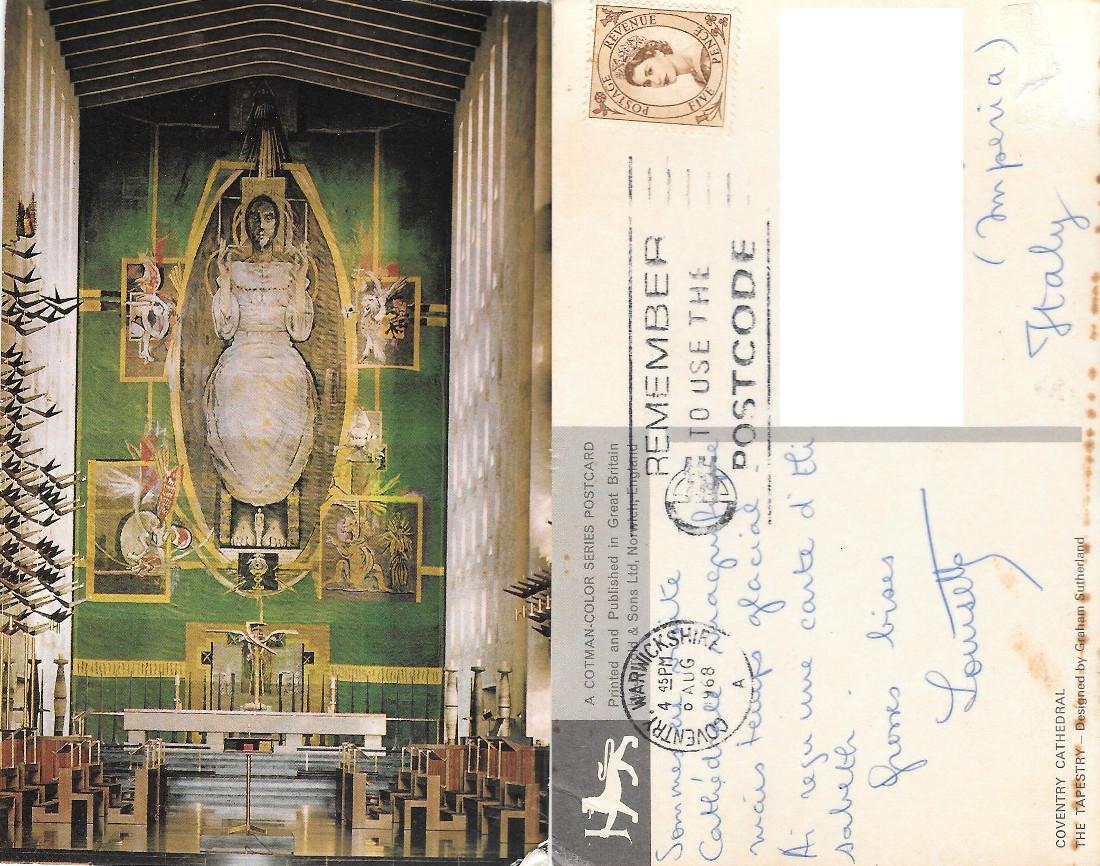 POSTAGE
REVENUE
FIVE
PENCE
REMEMBER
TO USE THE
POSTCODE
COVENTRY, WARWICKSHIRE
4 45PM
6 AUG
1968
A
A COTMAN-COLOR SERIES POSTCARD
Printed and Published in Great Britain
& Sons Ltd, Norwich, England
Sommes
Cathédrale magnifique
mais temps glacial -
Ai reçu une carte d'Eli
sabeth
Grosses bises
Louisette
(Imperia)
Italy
COVENTRY CATHEDRAL
THE TAPESTRY – Designed by Graham Sutherland